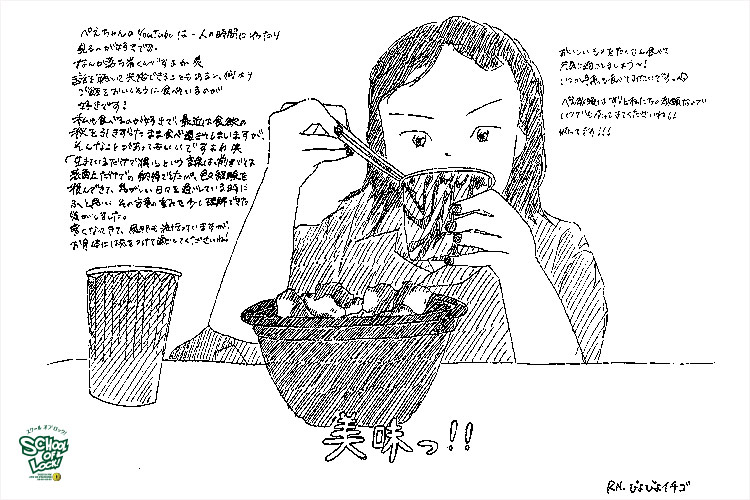 ぺえちゃんのYouTubeは一人の時間にゆったり
見るのが好きです。
なんか落ち着くんですよね 笑
話を聴いて共感できることもあるし、何より
ご飯をおいしそうに食べているのが
好きです!
私も食べるのが好きで、最近は食欲の
秋を引きずったまま食べ過ぎてしまいますが、
そんなことがあってもいいですよね 笑
「生きているだけで偉い」という言葉は、前までは
表面上だけでの納得でしたが、色々経験を
積んできて、忙しい日々を過ごしている時に
ふと思い その言葉の重みを少し理解できた
気がしました。
寒くなってきて、風邪も流行っていますが、
お身体には気をつけて過ごしてくださいね!
おいしいものをたくさん食べて
元気に過ごしましょう〜!
いつでも帰ってきてくださいね!!
美味っ!!
スクール オブ ロック!
SCHOOL OF LOCK!
RN. ぴよぴよイチゴ